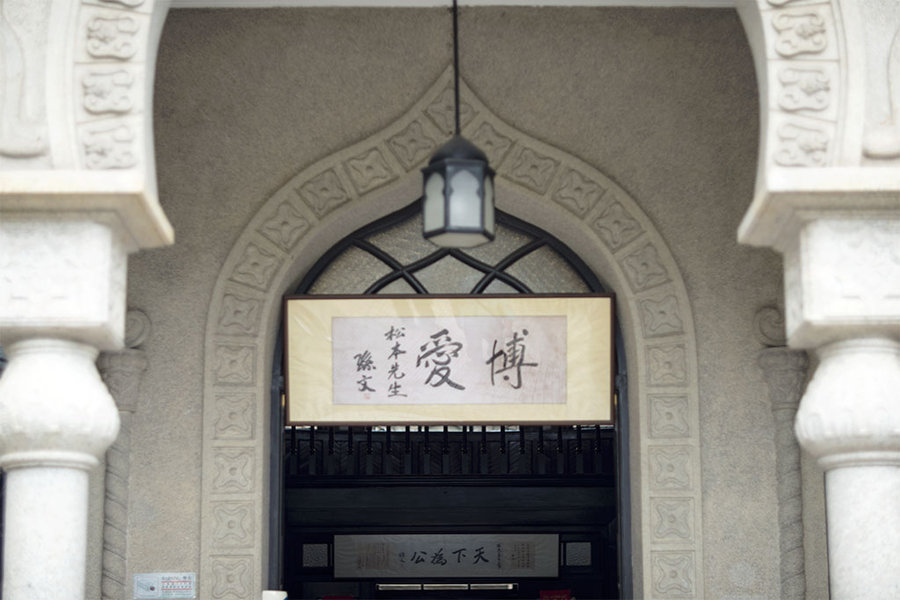 博愛
松本先生
孫文
天下為公